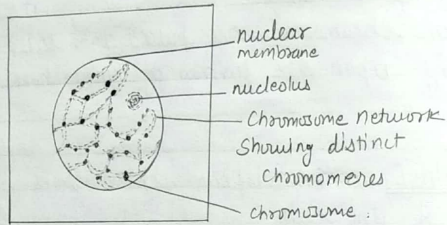 nuclear
membrane
nucleolus
Chromosome Network
Showing distinct
Chromomeres
chromosome.